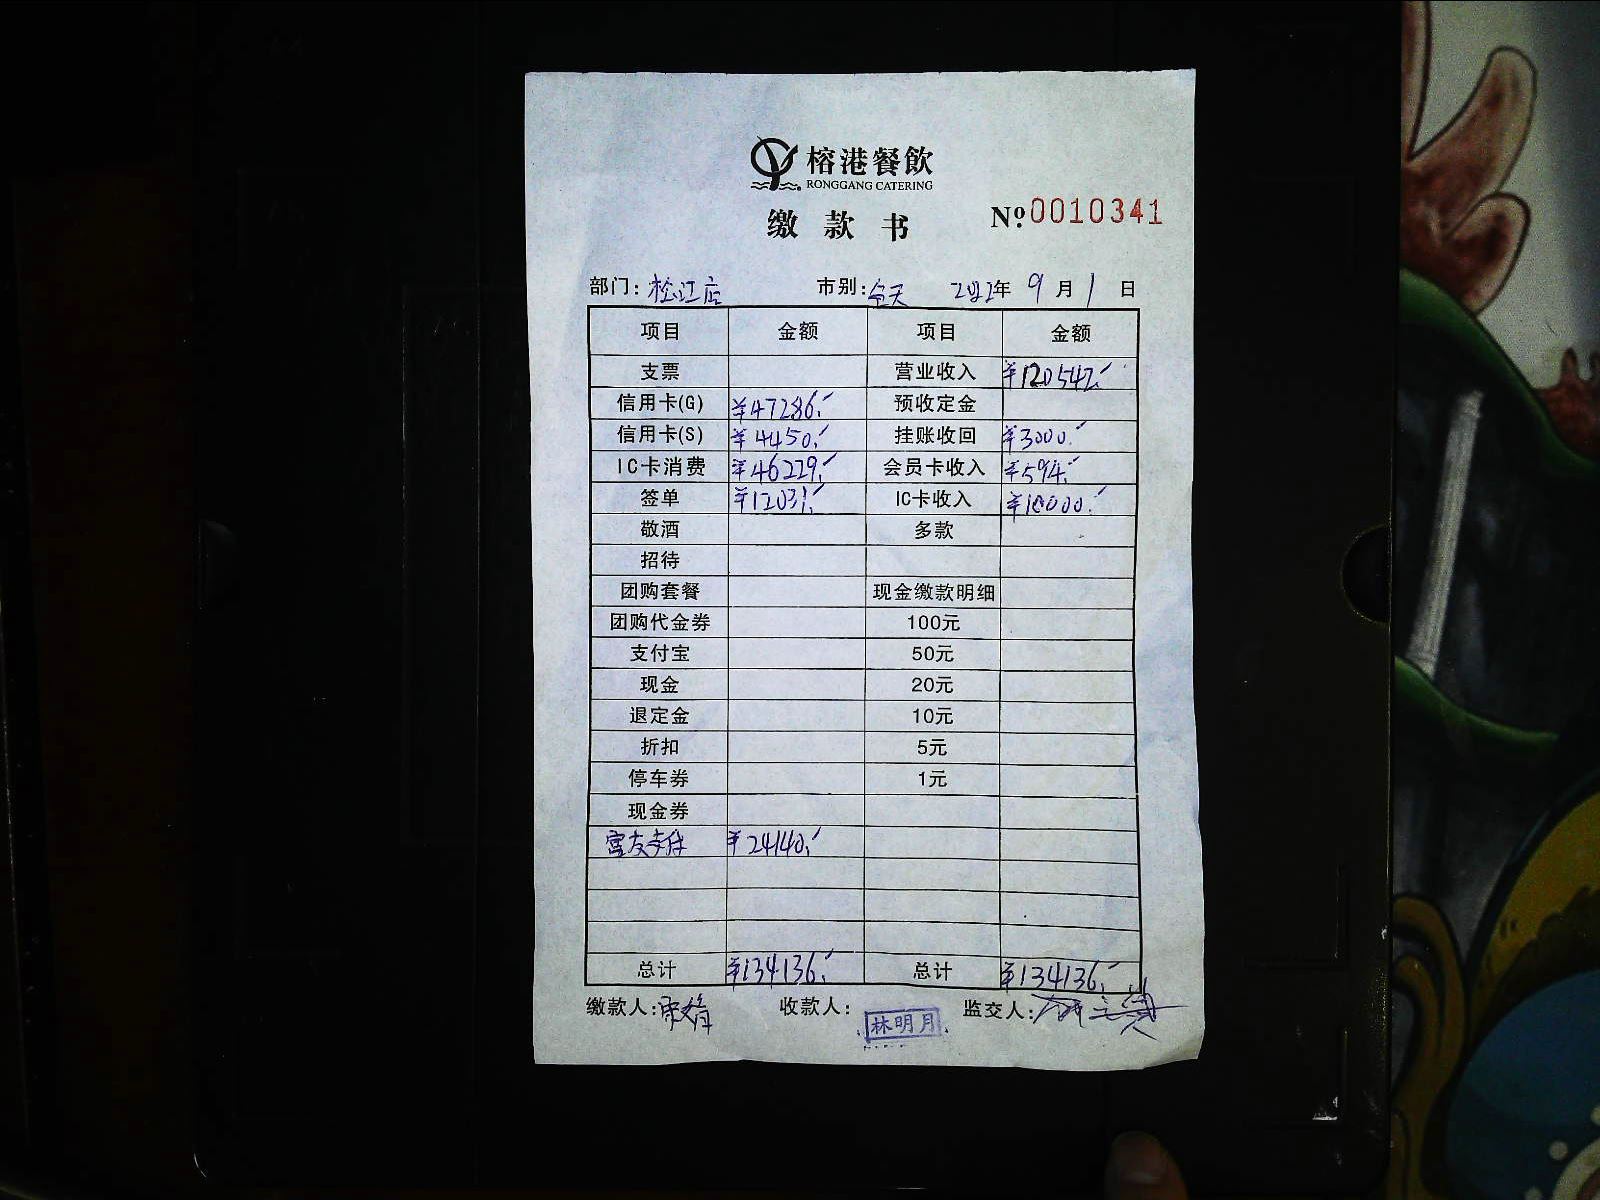 榕港餐飲
RONGGANG CATERING
缴款书 Nº 0010341
部门: 松江店 市别: 全天 2022年 9月 1日
项目 金额 项目 金额
支票 营业收入 ¥120542.
信用卡(G) ¥47286. 预收定金
信用卡(S) ¥4450. 挂账收回 ¥3000.
IC卡消费 ¥46229. 会员卡收入 ¥594.
签单 ¥12031. IC卡收入 ¥10000.
敬酒 多款
招待
团购套餐 现金缴款明细
团购代金券 100元
支付宝 50元
现金 20元
退定金 10元
折扣 5元
停车券 1元
现金券
富友支付 ¥24140.
总计 ¥134136. 总计 ¥134136.
缴款人: 收款人: 林明月 监交人: